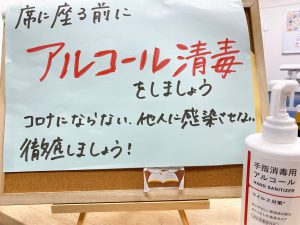 席に座る前に
アルコール清毒
をしましょう
コロナにならない、他人に感染させない
徹底しましょう!
手指消毒用
アルコール
HAND SANITIZER
ウイルス対策*